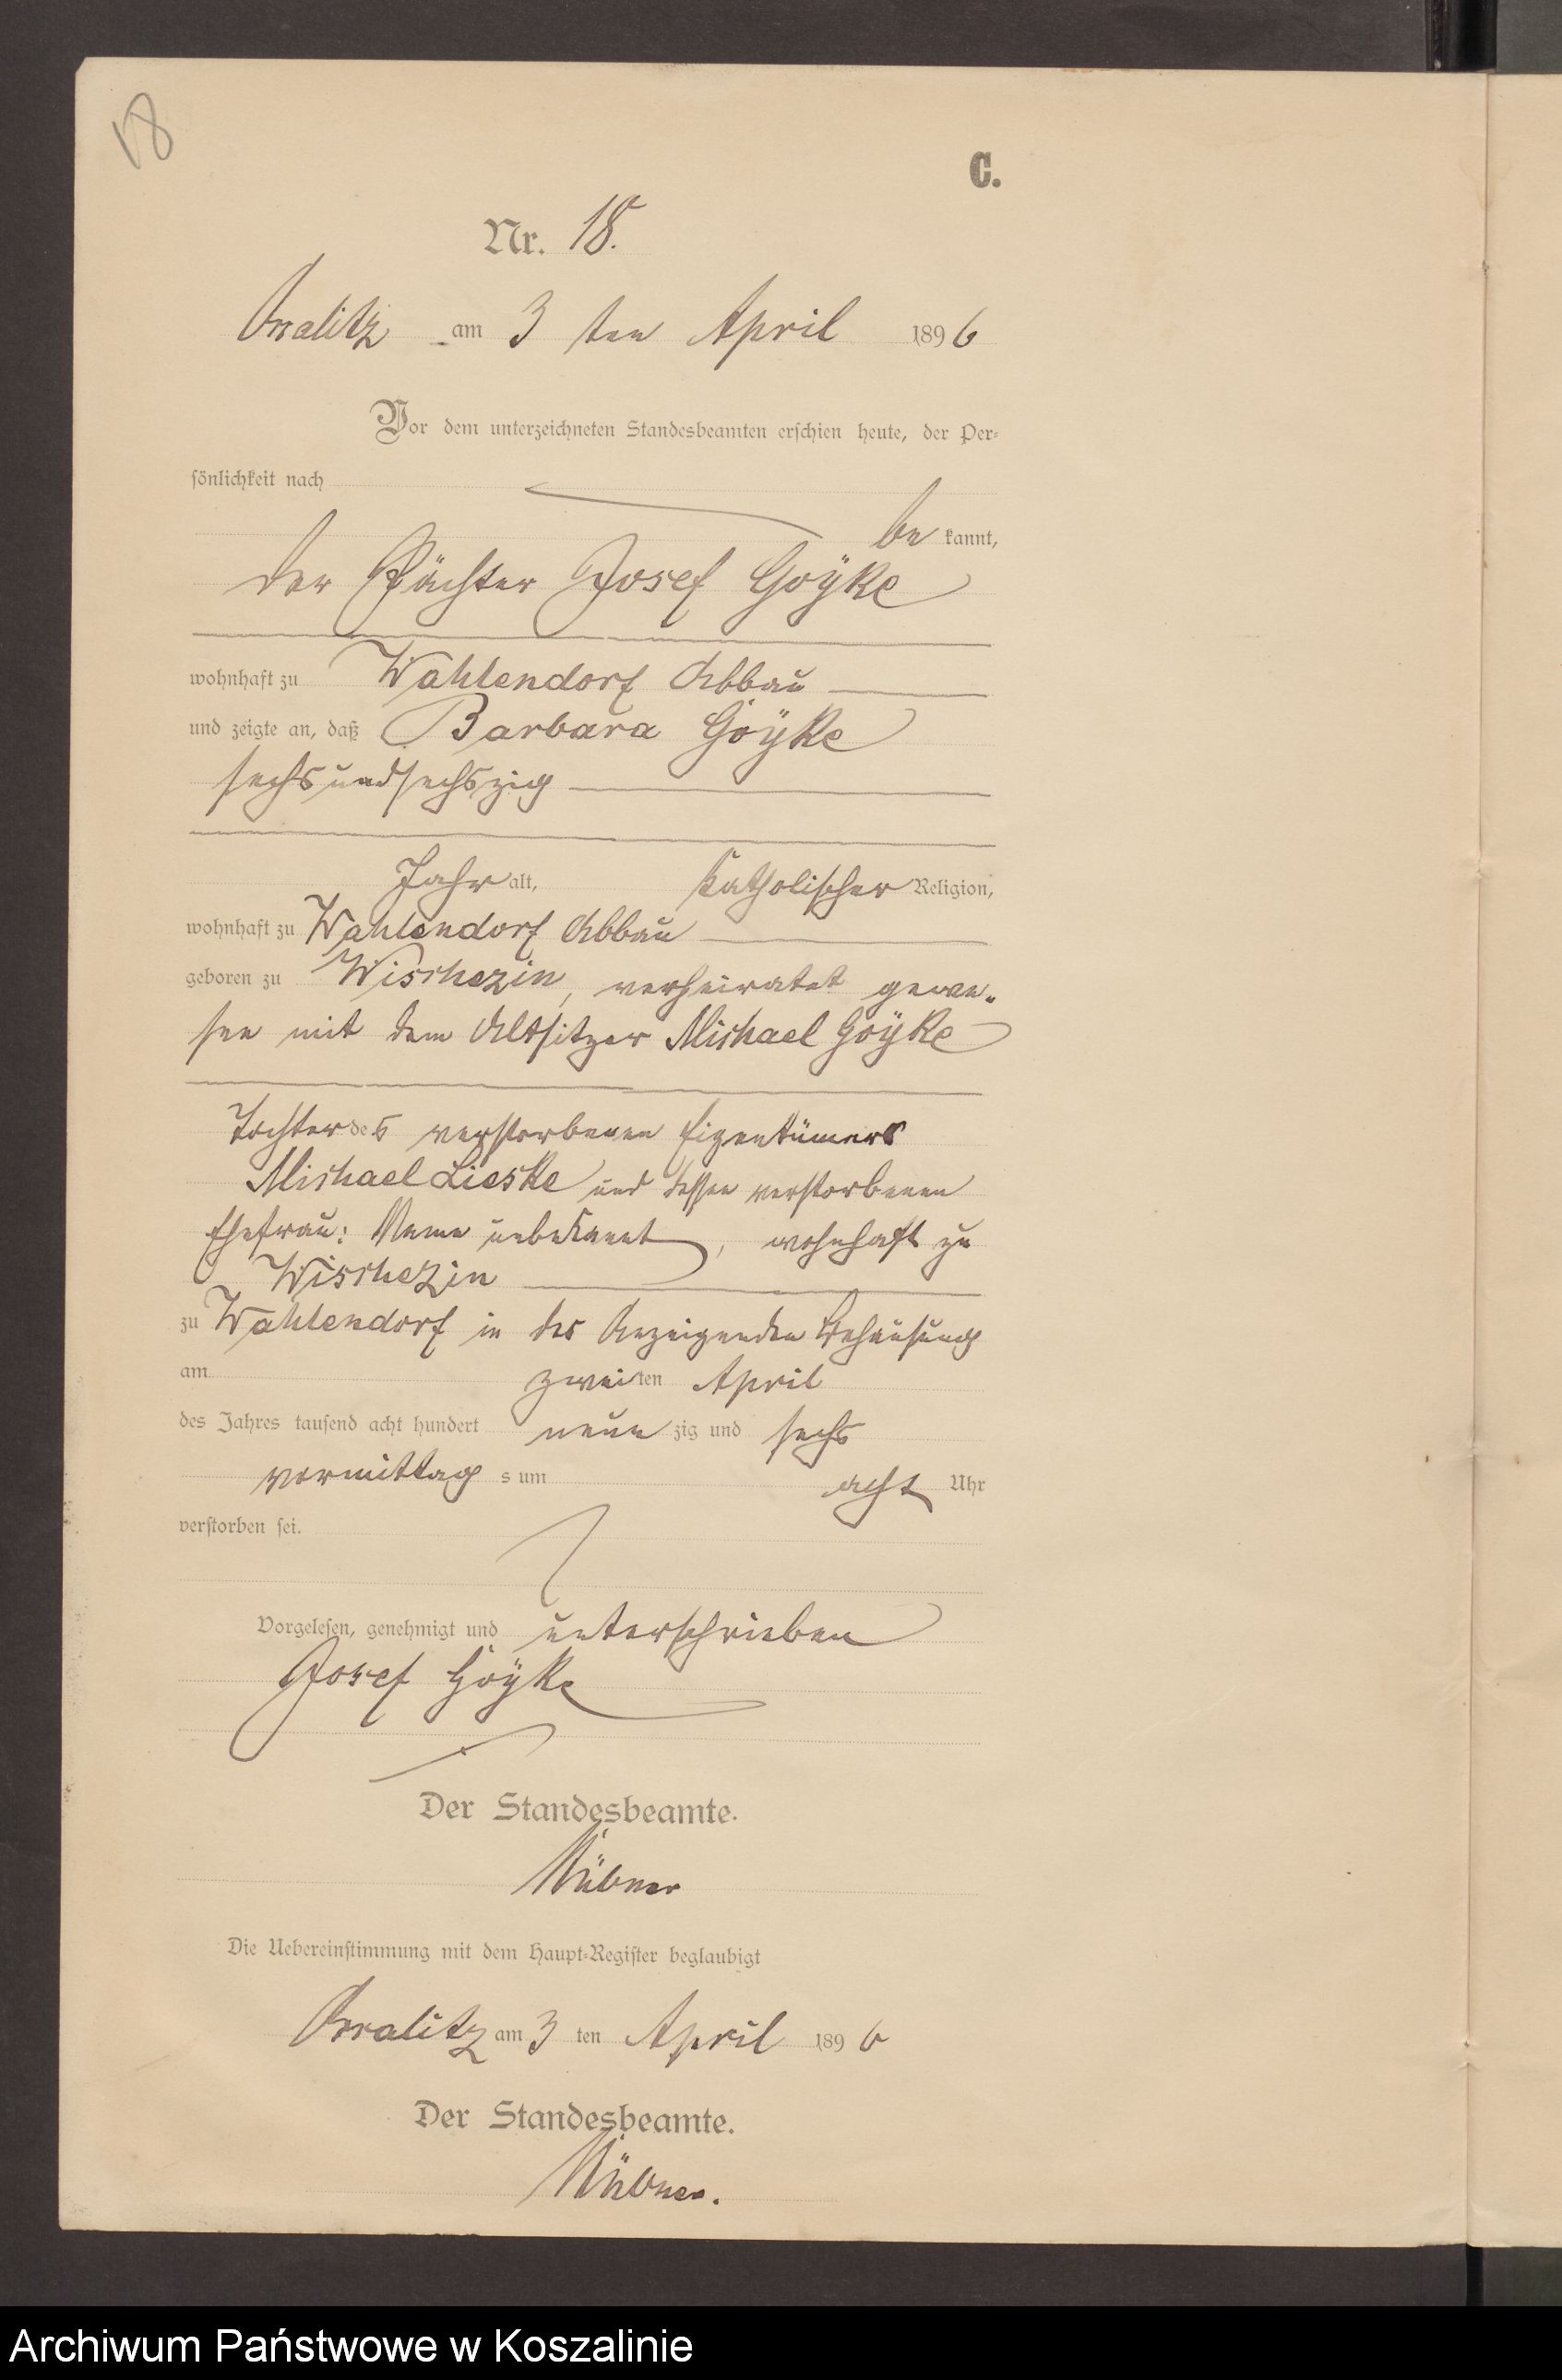 18
C.
Nr. 18.
Oslalitz am 3 ten April 1896
Vor dem unterzeichneten Standesbeamten erschien heute, der Per-
sönlichkeit nach
be kannt,
der Pächter Josef Goÿke
wohnhaft zu Wahlendorf Abbau
und zeigte an, daß Barbara Goÿke
sechsundsechszig
Jahr alt, katholischer Religion,
wohnhaft zu Wahlendorf Abbau
geboren zu Wischezin, verheiratet gewe-
sen mit dem Altsitzer Michael Goÿke
Tochter des verstorbenen Eigentümers
Michael Lieske und dessen verstorbenen
Ehefrau: Name unbekannt, wohnhaft zu
Wischezin
zu Wahlendorf in des Anzeigenden Behausung
am zweiten April
des Jahres tausend acht hundert neun zig und sechs
vormittag s um acht Uhr
verstorben sei.
Vorgelesen, genehmigt und unterschrieben
Josef Goÿke
Der Standesbeamte.
Die Uebereinstimmung mit dem Haupt-Register beglaubigt
am 3 ten April 1896
Der Standesbeamte.
Archiwum Państwowe w Koszalinie